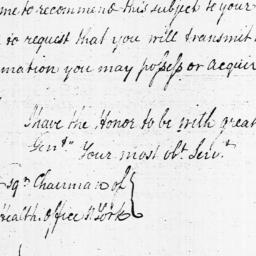 me to recommend this subject to your
to request that you will transmit
mation you may possess or acquir
I have the Honor to be with great
Gen.tn Your most ob.t Serv.t
sqr. Chairman of
Health Office N. York